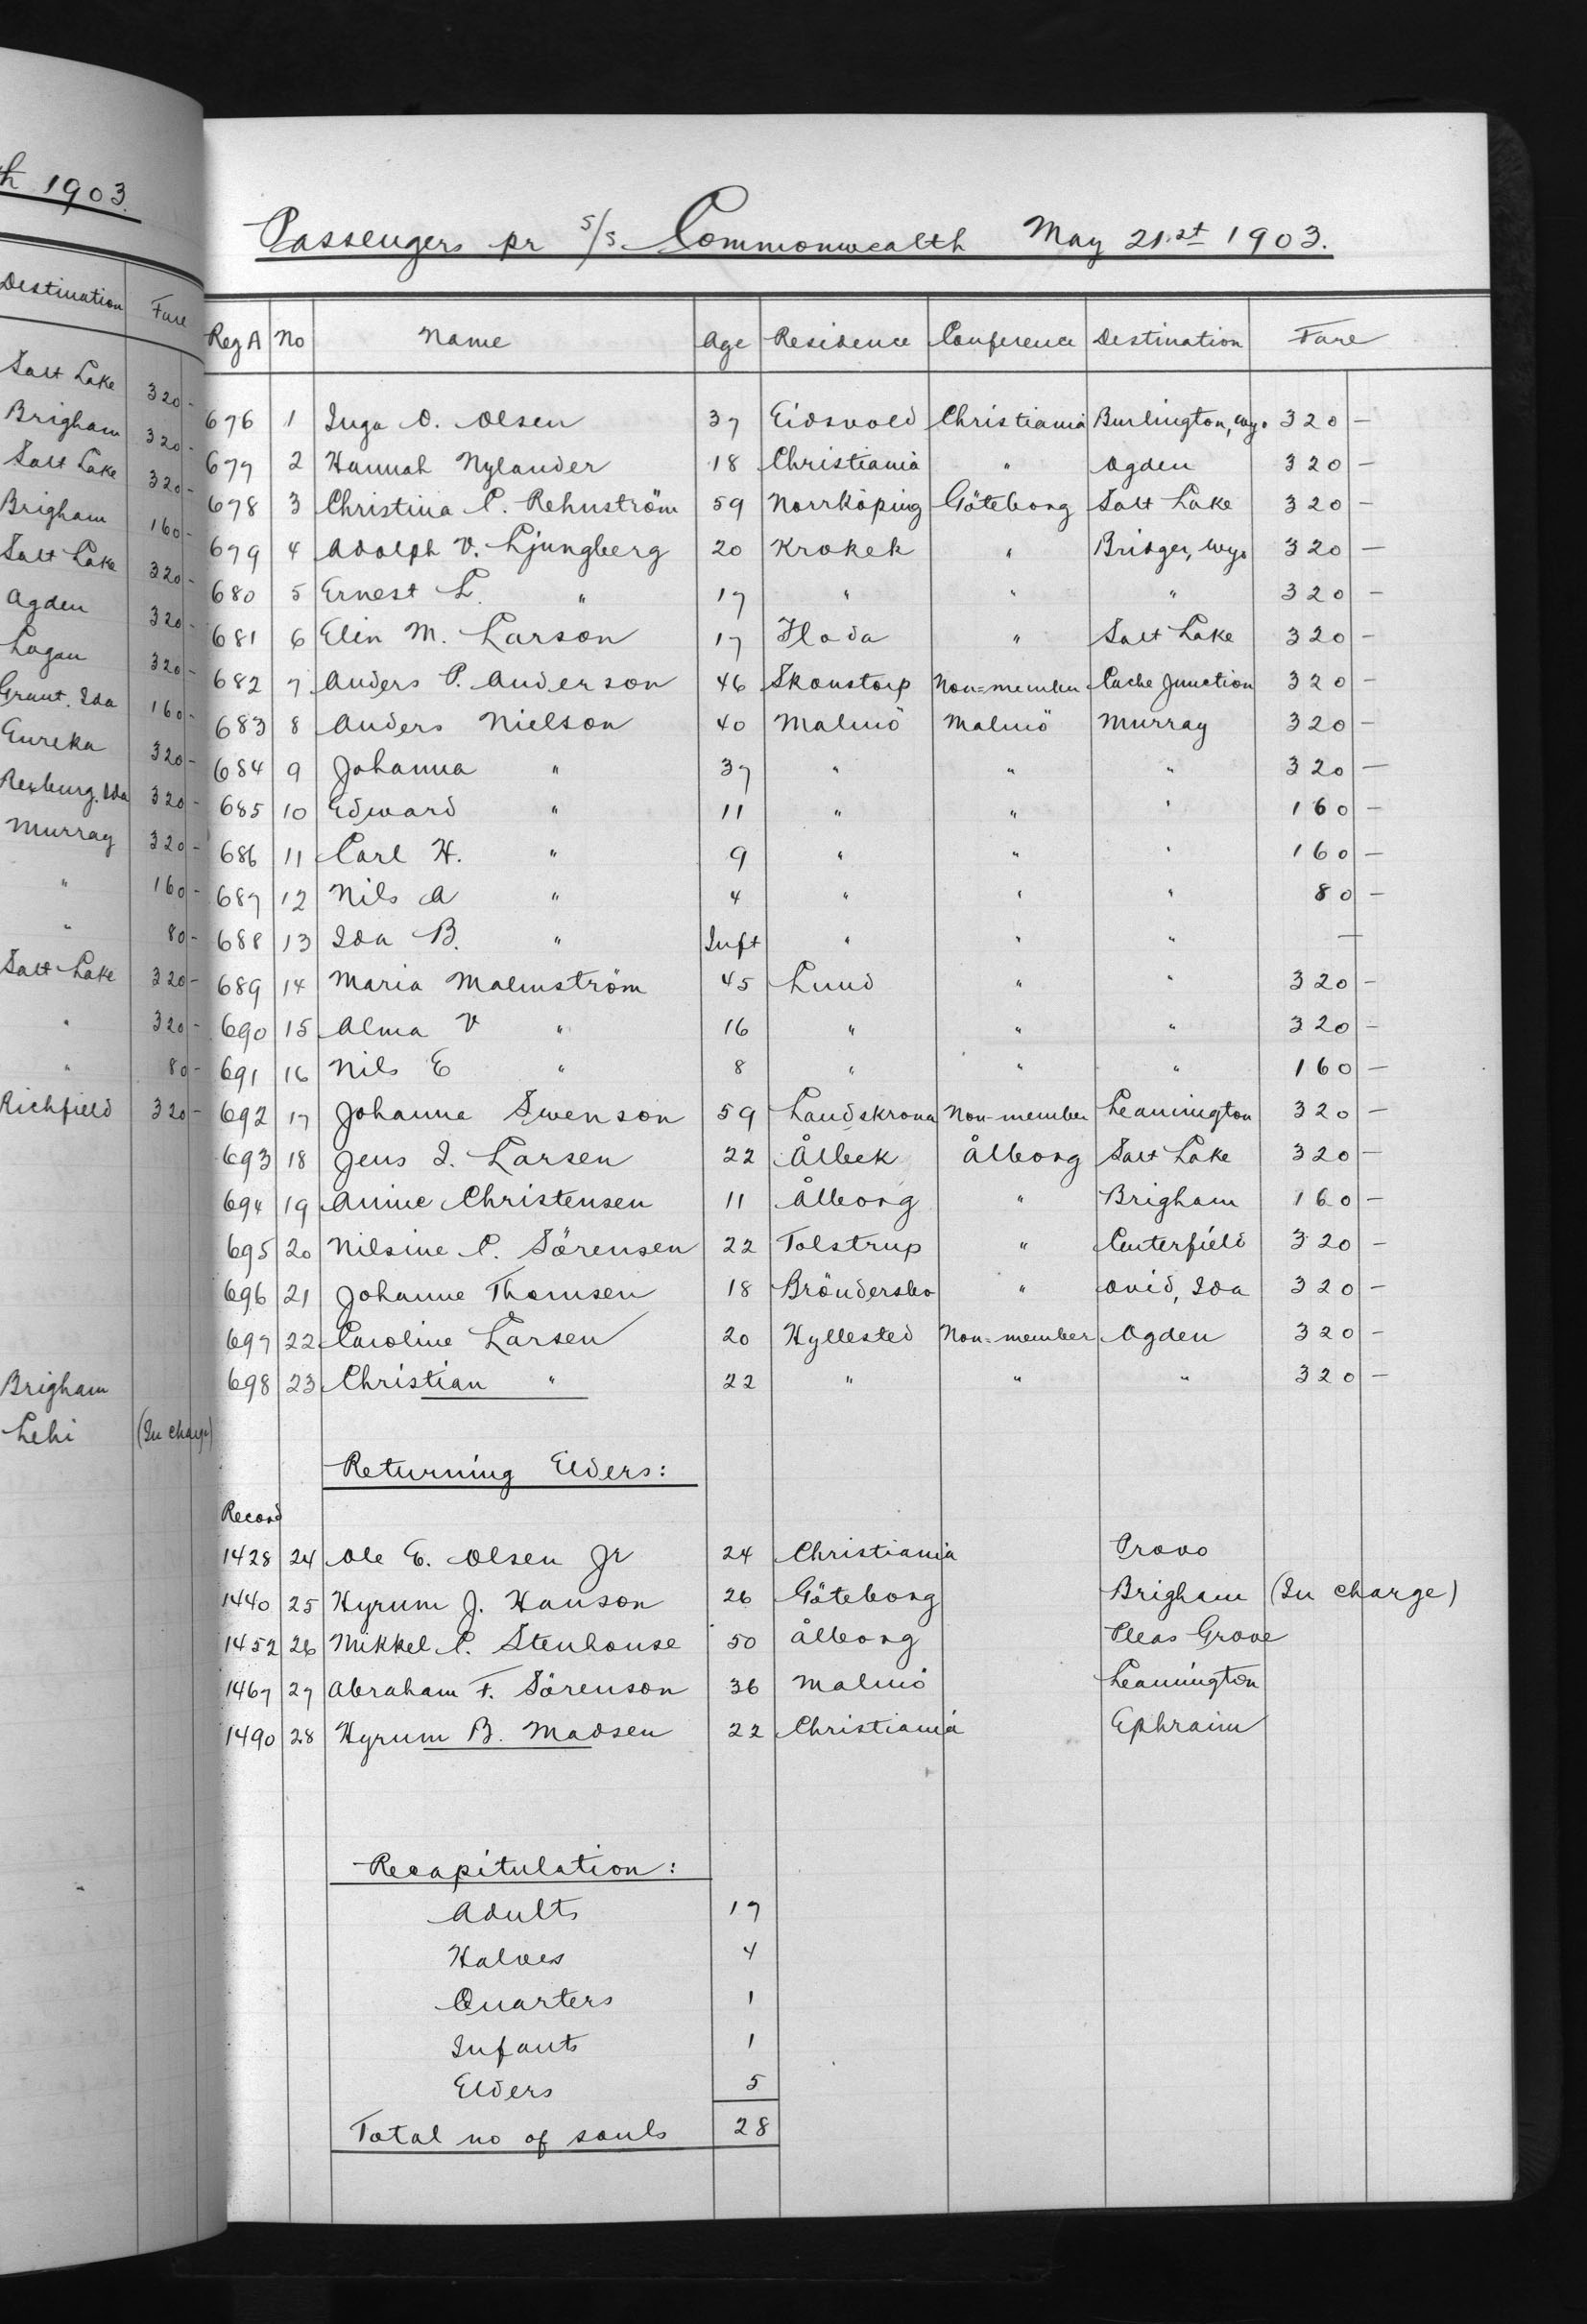 th 1903.
Destination Fare
Salt Lake 320 -
Brigham 320 -
Salt Lake 320 -
Brigham 160 -
Salt Lake 320 -
Ogden 320 -
Logan 320 -
Grant. Ida 160 -
Eureka 320 -
Rexburg. Ida 320 -
Murray 320 -
" 160 -
" 80 -
Salt Lake 320 -
" 320 -
" 80 -
Richfield 320 -
Brigham
Lehi (In charge)
Passengers pr s/s. Commonwealth May 21.st 1903.
Reg A No Name Age Residence Conference Destination Fare
676 1 Inga O. Olsen 37 Eidsvold Christiania Burlington, Wyo. 320 -
677 2 Hannah Nylander 18 Christiania " Ogden 320 -
678 3 Christina C. Rehnström 59 Norrköping Göteborg Salt Lake 320 -
679 4 Adolph V. Ljungberg 20 Krokek " Bridger, Wyo 320 -
680 5 Ernest L. " 17 " " " 320 -
681 6 Elin M. Larson 17 Floda " Salt Lake 320 -
682 7 Anders P. Anderson 46 Skonstorp Non=member Cache Junction 320 -
683 8 Anders Nielson 40 Malmö Malmö Murray 320 -
684 9 Johanna " 37 " " " 320 -
685 10 Edward " 11 " " " 160 -
686 11 Carl H. " 9 " " " 160 -
687 12 Nils A " 4 " " " 80 -
688 13 Ida B. " Inft " " " —
689 14 Maria Malmström 45 Lund " " 320 -
690 15 Alma V " 16 " " " 320 -
691 16 Nils E " 8 " " " 160 -
692 17 Johanna Swenson 59 Landskrona Non-member Leamington 320 -
693 18 Jens I. Larsen 22 Ålbek Ålborg Salt Lake 320 -
694 19 Anine Christensen 11 Ålborg " Brigham 160 -
695 20 Nilsine C. Sörensen 22 Tolstrup " Centerfield 320 -
696 21 Johanne Thomsen 18 Bröndersløv " Ovid, Ida 320 -
697 22 Caroline Larsen 20 Hyllested Non=member Ogden 320 -
698 23 Christian " 22 " " " 320 -
Returning Elders:
Record
1428 24 Ole E. Olsen Jr 24 Christiania Provo
1440 25 Hyrum J. Hanson 26 Göteborg Brigham (In charge)
1452 26 Mikkel C. Stenhouse 50 Ålborg Pleas Grove
1467 27 Abraham F. Sörenson 36 Malmö Leamington
1490 28 Hyrum B. Madsen 22 Christiania Ephraim
Recapitulation:
Adults 17
Halves 4
Quarters 1
Infants 1
Elders 5
Total no of souls 28